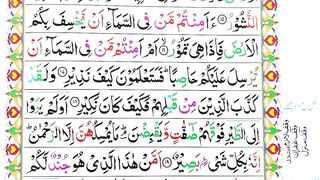 النُّشُوْرُ ۝ ءَاَمِنْتُمْ مَّنْ فِی السَّمَآءِ اَنْ یَّخْسِفَ بِكُمُ
الْاَرْضَ فَاِذَا هِیَ تَمُوْرُ ۝ اَمْ اَمِنْتُمْ مَّنْ فِی السَّمَآءِ اَنْ
یُّرْسِلَ عَلَیْكُمْ حَاصِبًا ؕ فَسَتَعْلَمُوْنَ كَیْفَ نَذِیْرِ ۝ وَ لَقَدْ
كَذَّبَ الَّذِیْنَ مِنْ قَبْلِهِمْ فَكَیْفَ كَانَ نَكِیْرِ ۝ اَوَلَمْ یَرَوْا
اِلَی الطَّیْرِ فَوْقَهُمْ صٰٓفّٰتٍ وَّ یَقْبِضْنَ ؔۘؕ مَا یُمْسِكُهُنَّ اِلَّا الرَّحْمٰنُ ؕ
اِنَّهٗ بِكُلِّ شَیْءٍۭ بَصِیْرٌ ۝ اَمَّنْ هٰذَا الَّذِیْ هُوَ جُنْدٌ لَّكُمْ